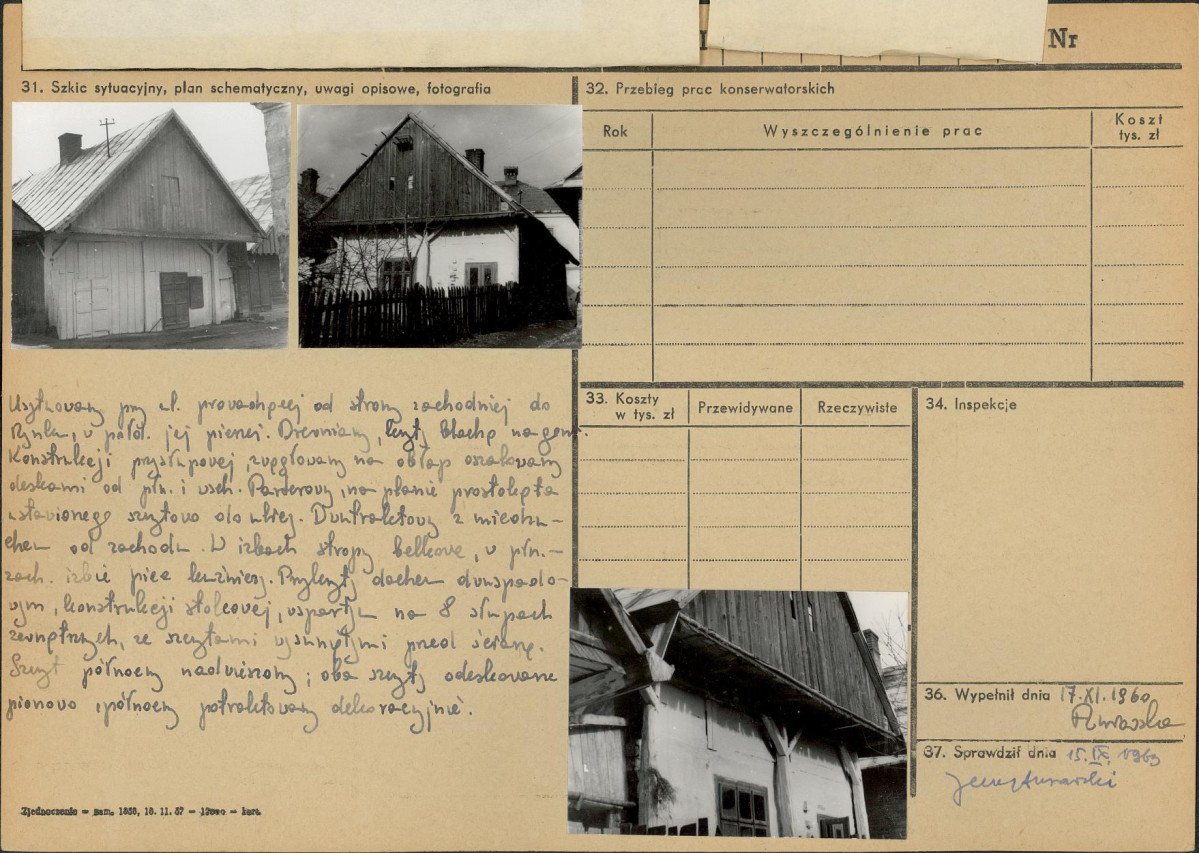 Nr
31. Szkic sytuacyjny, plan schematyczny, uwagi opisowe, fotografia
Usytuowany przy ul. prowadzącej od strony zachodniej do
Rynku, w połdn. jej pierzei. Drewniany, kryty blachą na gont.
Konstrukcji przysłupowej, zwęgłowany na obłap oszalowany
deskami od płn. i wsch. Parterowy, na planie prostokąta
ustawionego szczytowo do ulicy. Dwutraktowy z
od zachodu. W izbach stropy belkowe, w płn.-
zach. izbie piec kuchenny. Przykryty dachem dwuspado-
wym, konstrukcji stolcowej, wspartym na 8 słupach
zewnętrznych, ze szczytami wysuniętymi przed ścianę.
Szczyt północny nadwieszony; oba szczyty odeskowane
pionowo i północny potraktowany dekoracyjnie.
Zjednoczenie – zam. 1858, 16. 11. 57 – – kart.
32. Przebieg prac konserwatorskich
Rok
Wyszczególnienie prac
Koszt
tys. zł
33. Koszty
w tys. zł
Przewidywane
Rzeczywiste
34. Inspekcje
36. Wypełnił dnia 17.XI.1960
37. Sprawdził dnia 15.IX.1963